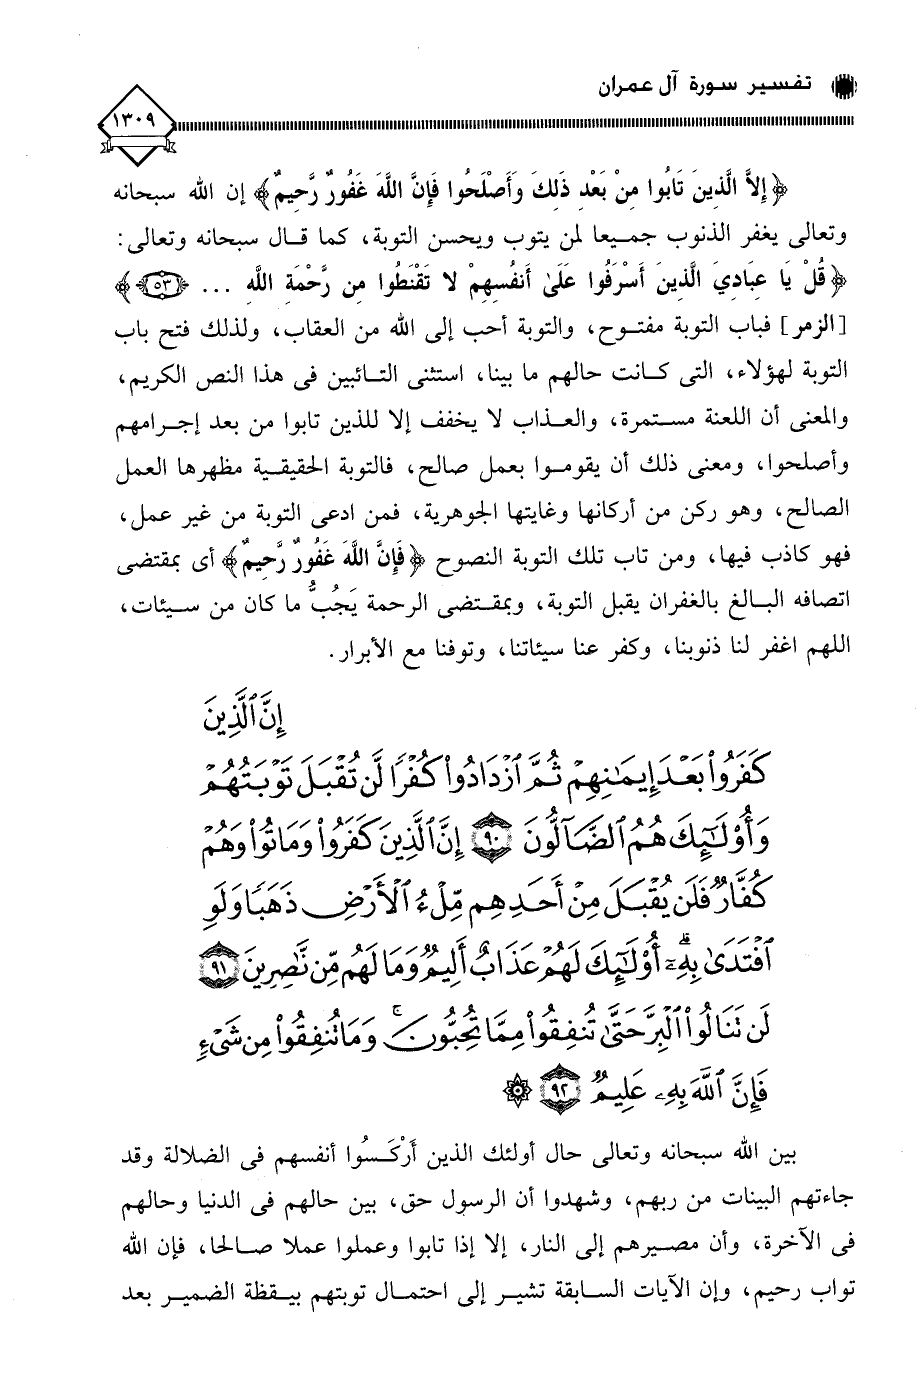 تفسير سورة آل عمران
١٣٠٩
﴿إِلاَّ الَّذِينَ تَابُوا مِنْ بَعْدِ ذَلِكَ وَأَصْلَحُوا فَإِنَّ اللَّهَ غَفُورٌ رَّحِيمٌ﴾ إن الله سبحانه
وتعالى يغفر الذنوب جميعا لمن يتوب ويحسن التوبة، كما قال سبحانه وتعالى:
﴿قُلْ يَا عِبَادِيَ الَّذِينَ أَسْرَفُوا عَلَىٰ أَنفُسِهِمْ لا تَقْنَطُوا مِن رَّحْمَةِ اللَّهِ ... ﴿٥٣﴾﴾
[الزمر] فباب التوبة مفتوح، والتوبة أحب إلى الله من العقاب، ولذلك فتح باب
التوبة لهؤلاء، التى كانت حالهم ما بينا، استثنى التائبين فى هذا النص الكريم،
والمعنى أن اللعنة مستمرة، والعذاب لا يخفف إلا للذين تابوا من بعد إجرامهم
وأصلحوا، ومعنى ذلك أن يقوموا بعمل صالح، فالتوبة الحقيقية مظهرها العمل
الصالح، وهو ركن من أركانها وغايتها الجوهرية، فمن ادعى التوبة من غير عمل،
فهو كاذب فيها، ومن تاب تلك التوبة النصوح ﴿فَإِنَّ اللَّهَ غَفُورٌ رَّحِيمٌ﴾ أى بمقتضى
اتصافه البالغ بالغفران يقبل التوبة، وبمقتضى الرحمة يَجُبُّ ما كان من سيئات،
اللهم اغفر لنا ذنوبنا، وكفر عنا سيئاتنا، وتوفنا مع الأبرار.
إِنَّ ٱلَّذِينَ
كَفَرُوا۟ بَعْدَ إِيمَـٰنِهِمْ ثُمَّ ٱزْدَادُوا۟ كُفْرًا لَّن تُقْبَلَ تَوْبَتُهُمْ
وَأُو۟لَـٰٓئِكَ هُمُ ٱلضَّآلُّونَ ﴿٩٠﴾ إِنَّ ٱلَّذِينَ كَفَرُوا۟ وَمَاتُوا۟ وَهُمْ
كُفَّارٌ فَلَن يُقْبَلَ مِنْ أَحَدِهِم مِّلْءُ ٱلْأَرْضِ ذَهَبًا وَلَوِ
ٱفْتَدَىٰ بِهِۦٓ ۗ أُو۟لَـٰٓئِكَ لَهُمْ عَذَابٌ أَلِيمٌ وَمَا لَهُم مِّن نَّـٰصِرِينَ ﴿٩١﴾
لَن تَنَالُوا۟ ٱلْبِرَّ حَتَّىٰ تُنفِقُوا۟ مِمَّا تُحِبُّونَ ۚ وَمَا تُنفِقُوا۟ مِن شَىْءٍ
فَإِنَّ ٱللَّهَ بِهِۦ عَلِيمٌ ﴿٩٢﴾
بين الله سبحانه وتعالى حال أولئك الذين أَرْكَسُوا أنفسهم فى الضلالة وقد
جاءتهم البينات من ربهم، وشهدوا أن الرسول حق، بين حالهم فى الدنيا وحالهم
فى الآخرة، وأن مصيرهم إلى النار، إلا إذا تابوا وعملوا عملا صالحا، فإن الله
تواب رحيم، وإن الآيات السابقة تشير إلى احتمال توبتهم بيقظة الضمير بعد